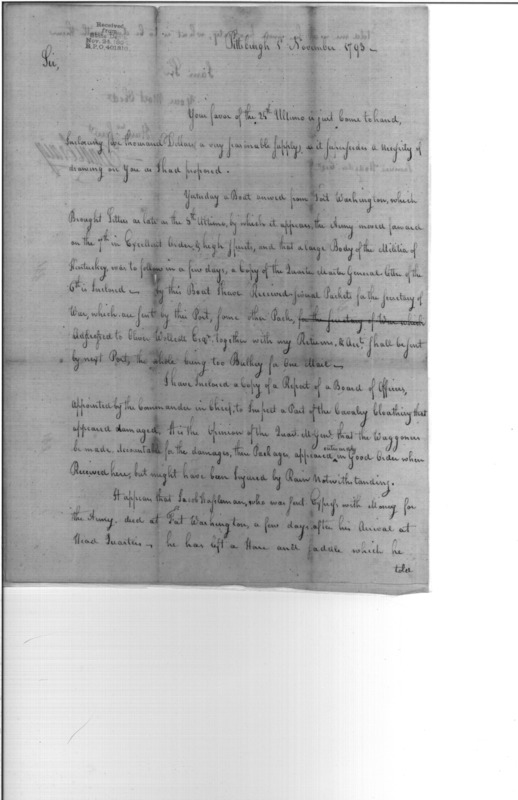 Received
Nov. 24, 
R.P.O. 401810
Pittsburgh 1 November 1793 -
Sir,
Your favor of the 25th Ultimo is just Come to hand,
Inclosing five thousand Dollars, a very seasonable supply, as it supersedes a necessity of
drawing on You as I had proposed.
Yesterday a Boat arrived from Fort Washington, which
Brought Letters as late as the 8th Ultimo, by which it appears, the Army moved forward
on the 7th in Excellent Order, & high Spirits, and that a large Body of the Militia of
Kentucky, was to follow in a few days, a Copy of the Quarter Master General Letter of the
6th is Inclosed - By this Boat I have Received several Packets for the Secretary of
War, which are sent by this Post, some other Pack, for the Secretary of War which
Addressed to Oliver Wolcott Esqr. together with my Returns, & Acc.ts shall be sent
by next Post, the whole being too Bulkey for One Mail -
I have Inclosed a Copy of a Report of a Board of Officers,
Appointed by the Commander in Chief, to Inspect a Part of the Cavalry Cloathing that
appeared damaged. It is the Opinion of the Quar. M. Genl. that the Waggoners
be made accountable for the damages, their Packages appeared outwardly in Good Order when
Received here, but might have been Injured by Rain Notwithstanding.
It appears that Jacob Kapleman, who was sent Express with Money for
the Army, died at Fort Washington, a few days after his Arrival at
Head Quarters - he has left a Horse and saddle which he
told